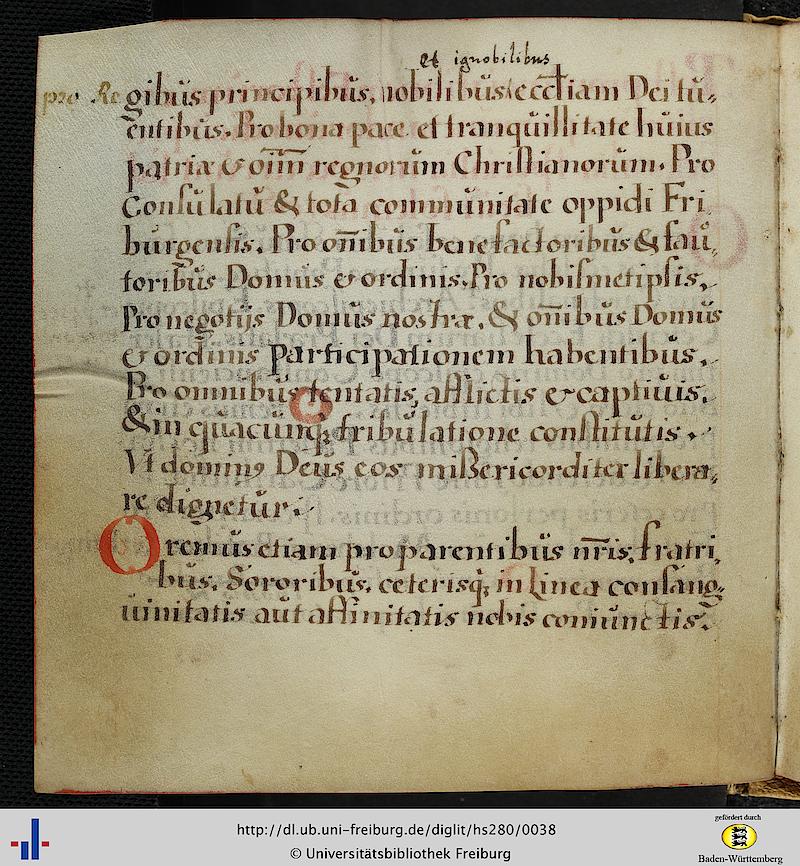 et ignobilibus
pro Re gibus principibus, nobilibus, eccl̄iam Dei tu,,
entibus. Pro bona pace et tranquillitate huius
patriæ & oīm regnorum Christianorum. Pro
Consulatu & tota communitate oppidi Fri,,
burgensis. Pro om̄ibus benefactoribus & fau,,
toribus Domus & ordinis. Pro nobismetipsis,
Pro negotijs Domus nostræ. & om̄ibus Domus
& ordinis participationem habentibus,
Pro omnibus tentatis, afflictis & captiuis.
& in quacunq; tribulatione constitutis.
Vt dominꝰ Deus eos misericorditer libera,,
re dignetur.
Oremus etiam pro parentibus nr̄is, fratri,,
bus, Sororibus, ceterisq; in Linea consang,,
uinitatis aut affinitatis nobis coniunctis.
http://dl.ub.uni-freiburg.de/diglit/hs280/0038
© Universitätsbibliothek Freiburg
gefördert durch
Baden-Württemberg